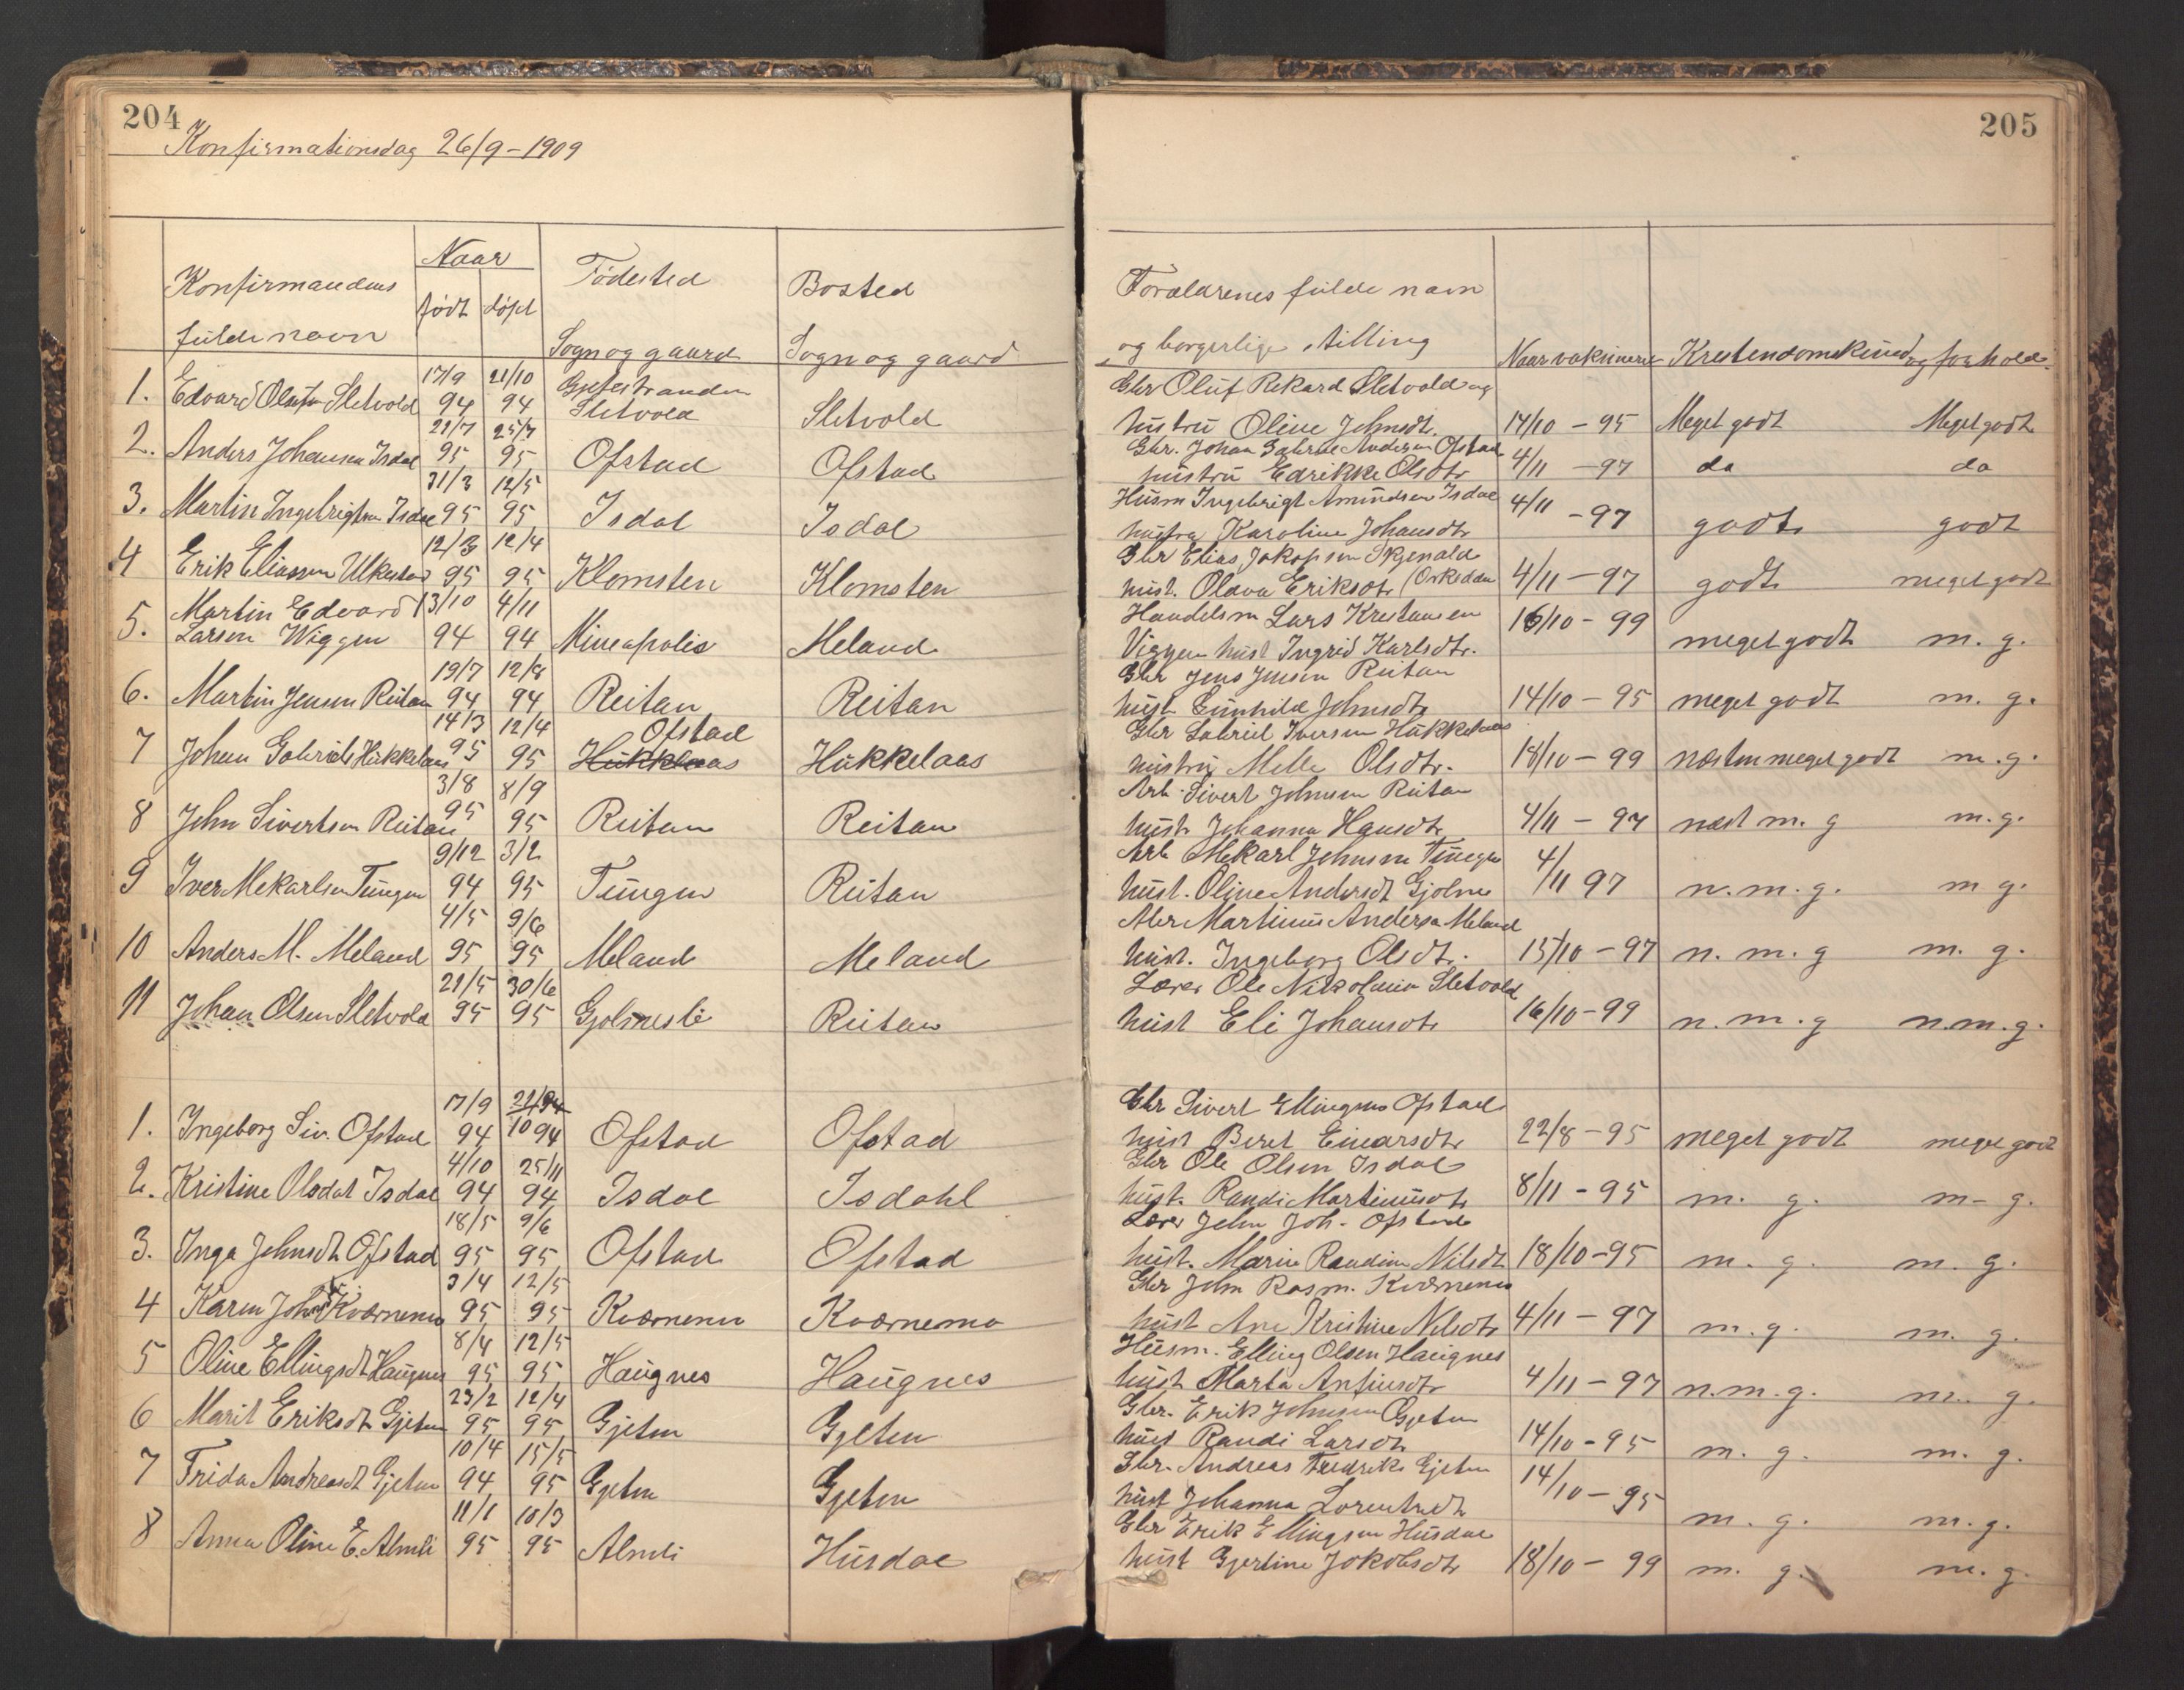 204
Konfirmationsdag 26/9 - 1909
Konfirmandens fulde navn
Naar
født døpt
Fødested
Sogn og gaard
Bosted
Sogn og gaard
1. Edvard Olufsn Sletvold 17/9 94 21/10 94 Gjefstranden Sletvold Sletvold
2. Anders Johansen Isdal 21/7 95 25/7 95 Ofstad Ofstad
3. Martin Ingebrigtsn Isdal 31/3 95 12/5 95 Isdal Isdal
4 Erik Eliassen Ulkestad 12/3 95 12/4 95 Klomsten Klomsten
5. Martin Edvard Larsen Wiggen 13/10 94 4/11 94 Mineapolis Meland
6. Martin Jensen Reitan 19/7 94 12/8 94 Reitan Reitan
7 Johan Gabriels Hukkelaas 14/3 95 12/4 95 Ofstad Hukkelaas Hukkelaas
8 John Sivertsen Reitan 3/8 95 8/9 95 Reitan Reitan
9 Iver Mekarlsen Tungen 9/12 94 3/2 95 Tungen Reitan
10 Anders M. Meland 4/5 95 9/6 95 Meland Meland
11 Johan Olsen Sletvold 21/5 95 30/6 95 Gjolmesli Reitan
1. Ingeborg Siv. Ofstad 17/9 94 21/94 10 94 Ofstad Ofstad
2. Kristine Olsdat Isdal 4/10 94 25/11 94 Isdal Isdahl
3. Inga Johnsdt Ofstad 18/5 95 9/6 95 Ofstad Ofstad
4 Karen Johns Kværnemo 3/4 95 12/5 95 Kværnemo Kværnemo
5 Oline Ellingsdt Haugnes 8/4 95 12/5 95 Haugnes Haugnes
6 Marit Eriksdt Gjeten 23/2 95 12/4 95 Gjeten Gjeten
7 Frida Andreasdt Gjeten 10/4 94 15/5 95 Gjeten Gjeten
8 Anna Oline E. Almli 11/1 95 10/3 95 Almli Husdal
205
Forældrenes fulde navn
og borgerlige stilling
Naar vaksineret
Krestendomskund. og forhold.
Gbr Oluf Rekard Sletvold og
hustru Oline Johnsdt. 14/10 - 95 Meget godt Meget godt
Gbr. Johan Gabriel Andersen Ofstad
hustru Edrikke Olsdtr 4/11 - 97 do do
Husm Ingebrigt Amundsen Isdal
hustru Karoline Johansdt 4/11 - 97 godt godt
Gbr Elias Jakopsen Skjenald
hust. Olava Eriksdt (Orkedalen 4/11 - 97 godt meget godt
Handelsm Lars Kristiansen
Viggen hust Ingrid Karlsdtr. 16/10 - 99 meget godt m. g.
Gbr Jens Jensen Reitan
hust Gunhild Johnsdt 14/10 - 95 meget godt m. g.
Gbr Gabriel Iversen Hukkelaas
hustru Mille Olsdtr. 18/10 - 99 næsten meget godt m. g.
Arb. Sivert Johnsen Reitan
hust Johanna Hansdt 4/11 - 97 næst m. g m. g.
Arb Mekarl Johnsen Tungen
hust. Oline Andersdt Gjolme 4/11 97 n. m. g. m g.
Gbr Martinus Andersen Meland
hust. Ingeborg Olsdt. 15/10 - 97 n. m. g m. g.
Lærer Ole Nikolaisen Sletvold
hust Eli Johansdt 16/10 - 99 n. m. g n.m.g.
Gbr Sivert Ellingsen Ofstad
hust Beret Einarsdt 22/8 - 95 meget godt meget godt
Gbr Ole Olsen Isdal
hust. Randi Martinusdt 8/11 - 95 m. g. m- g.
Lærer John Joh. Ofstad
hust. Marie Randine Nilsdt 18/10 - 95 m. g. m. g.
Gbr John Rasm. Kværnemo
hust Ane Kristine Nilsdt 4/11 - 97 m. g. m. g.
Husm. Elling Olsen Haugnes
hust Marta Anfinsdt 4/11 - 97 n. m. g. m. g.
Gbr. Erik Johnsen Gjeten
hust Randi Larsdt 14/10 - 95 m. g. m. g.
Gbr. Andreas Fredriks Gjeten
hust Johanna Lorentsdt 14/10 - 95 m. g. m. g.
Gbr Erik Ellingsen Husdal
hust Gjertine Jakobsdt 18/10 - 99 m. g. m. g.